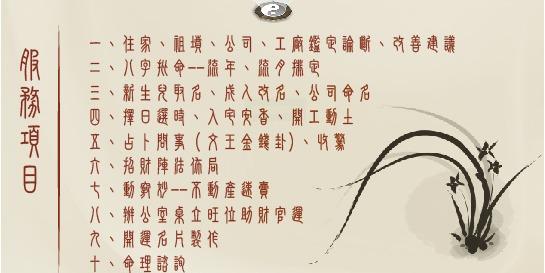 服務項目
一、住家、祖墳、公司、工廠鑑定論斷、改善建議
二、八字批命--流年、流月擇定
三、新生兒取名、成人改名、公司命名
四、擇日選時、入宅安香、開工動土
五、占卜問事(文王金錢卦)、收驚
六、招財陣法佈局
七、動竅妙--不動產速賣
八、辦公室桌立旺位助財官運
九、開運名片製作
十、命理諮詢